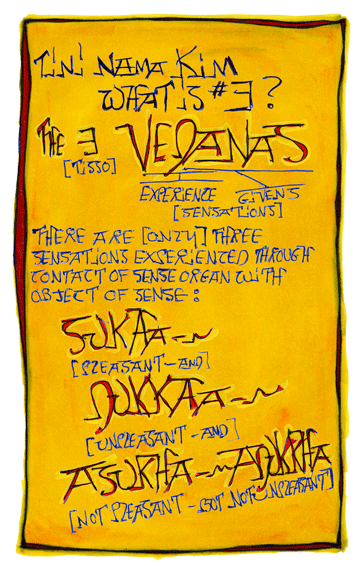 TINI NAMA KIM
WHAT IS #3?
THE 3 VEDANAS
[TISSO]
EXPERIENCE GIVENS
[SENSATIONS]
THERE ARE [ONLY] THREE
SENSATIONS EXPERIENCED THROUGH
CONTACT OF SENSE ORGAN WITH
OBJECT OF SENSE:
SUKHA -~
[PLEASANT - AND]
DUKKHA -~
[UNPLEASANT - AND]
ASUKHA -~ ADUKKHA
[NOT PLEASANT - BUT NOT UNPLEASANT]